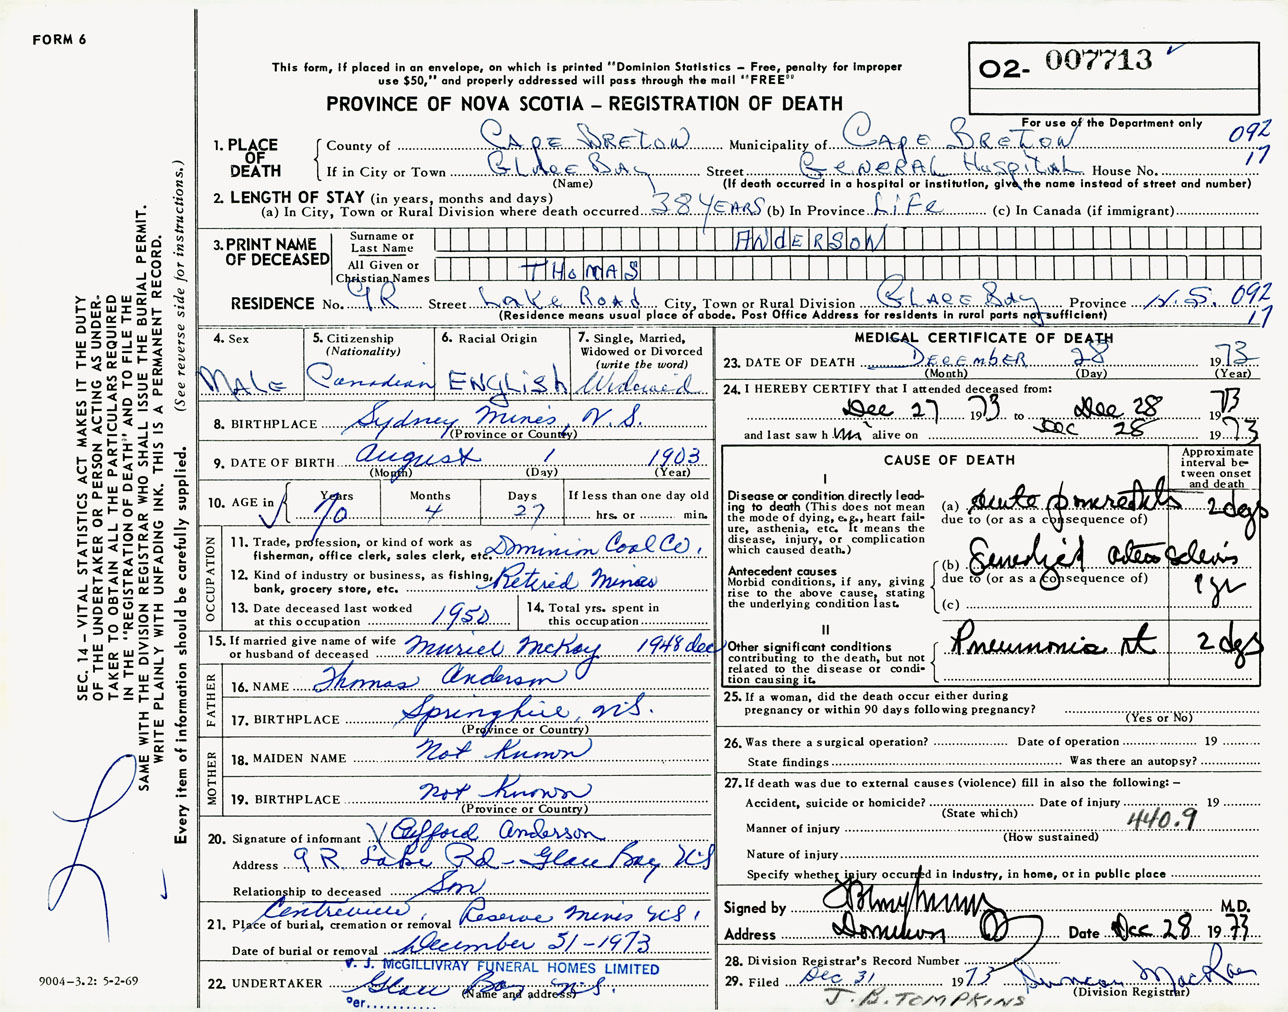 FORM 6
This form, if placed in an envelope, on which is printed "Dominion Statistics – Free, penalty for improper
use $50," and properly addressed will pass through the mail "FREE"
PROVINCE OF NOVA SCOTIA – REGISTRATION OF DEATH
O2- 007713
For use of the Department only
092
17
1. PLACE OF DEATH
County of CAPE BRETON Municipality of CAPE BRETON
If in City or Town GLACE BAY Street GENERAL HOSPITAL House No.
(Name) (If death occurred in a hospital or institution, give the name instead of street and number)
2. LENGTH OF STAY (in years, months and days)
(a) In City, Town or Rural Division where death occurred 38 YEARS (b) In Province LIFE (c) In Canada (if immigrant)
3. PRINT NAME OF DECEASED
Surname or Last Name ANDERSON
All Given or Christian Names THOMAS
RESIDENCE No. 9R Street Lake Road City, Town or Rural Division GLACE BAY Province N.S. 092
17
(Residence means usual place of abode. Post Office Address for residents in rural parts not sufficient)
4. Sex
MALE
5. Citizenship
(Nationality)
Canadian
6. Racial Origin
ENGLISH
7. Single, Married,
Widowed or Divorced
(write the word)
Widowed
8. BIRTHPLACE Sydney Mines, N.S.
(Province or Country)
9. DATE OF BIRTH August 1 1903
(Month) (Day) (Year)
10. AGE in Years 70 Months 4 Days 27 If less than one day old
hrs. or min.
OCCUPATION
11. Trade, profession, or kind of work as
fisherman, office clerk, sales clerk, etc. Dominion Coal Co.
12. Kind of industry or business, as fishing,
bank, grocery store, etc. Retired Miner
13. Date deceased last worked
at this occupation 1950
14. Total yrs. spent in
this occupation
15. If married give name of wife
or husband of deceased Muriel McKay 1948 dec
FATHER
16. NAME Thomas Anderson
17. BIRTHPLACE Springhill, N.S.
(Province or Country)
MOTHER
18. MAIDEN NAME Not Known
19. BIRTHPLACE Not Known
(Province or Country)
20. Signature of informant Clifford Anderson
Address 9 R Lake Rd - Glace Bay NS
Relationship to deceased Son
21. Place of burial, cremation or removal Centreville, Reserve Mines N.S.
Date of burial or removal December 31-1973
V. J. McGILLIVRAY FUNERAL HOMES LIMITED
22. UNDERTAKER Glace Bay N.S.
(Name and address)
Per
MEDICAL CERTIFICATE OF DEATH
23. DATE OF DEATH DECEMBER 28 1973
(Month) (Day) (Year)
24. I HEREBY CERTIFY that I attended deceased from:
Dec 27 1973 to Dec 28 1973
and last saw him alive on Dec 28 1973
CAUSE OF DEATH
Approximate
interval be-
tween onset
and death
I
Disease or condition directly lead-
ing to death (This does not mean
the mode of dying, e.g., heart fail-
ure, asthenia, etc. It means the
disease, injury, or complication
which caused death.)
(a) Acute pancreatitis 2 dys
due to (or as a consequence of)
Antecedent causes
Morbid conditions, if any, giving
rise to the above cause, stating
the underlying condition last.
(b) Generalized arteriosclerosis
due to (or as a consequence of)
1 yr
(c)
II
Other significant conditions
contributing to the death, but not
related to the disease or condi-
tion causing it.
Pneumonia rt 2 dys
25. If a woman, did the death occur either during
pregnancy or within 90 days following pregnancy?
(Yes or No)
26. Was there a surgical operation? Date of operation 19
State findings Was there an autopsy?
27. If death was due to external causes (violence) fill in also the following: –
Accident, suicide or homicide? Date of injury 19
(State which)
440.9
Manner of injury
(How sustained)
Nature of injury
Specify whether injury occurred in industry, in home, or in public place
Signed by M.D.
Address Dominion Date Dec 28 1973
28. Division Registrar's Record Number
29. Filed Dec 31 1973 Duncan MacRae
(Division Registrar)
J. B. TOMPKINS
SEC. 14 – VITAL STATISTICS ACT MAKES IT THE DUTY
OF THE UNDERTAKER OR PERSON ACTING AS UNDER-
TAKER TO OBTAIN ALL THE PARTICULARS REQUIRED
IN THE "REGISTRATION OF DEATH" AND TO FILE THE
SAME WITH THE DIVISION REGISTRAR WHO SHALL ISSUE THE BURIAL PERMIT.
WRITE PLAINLY WITH UNFADING INK. THIS IS A PERMANENT RECORD.
Every item of information should be carefully supplied. (See reverse side for instructions.)
9004-3.2: 5-2-69